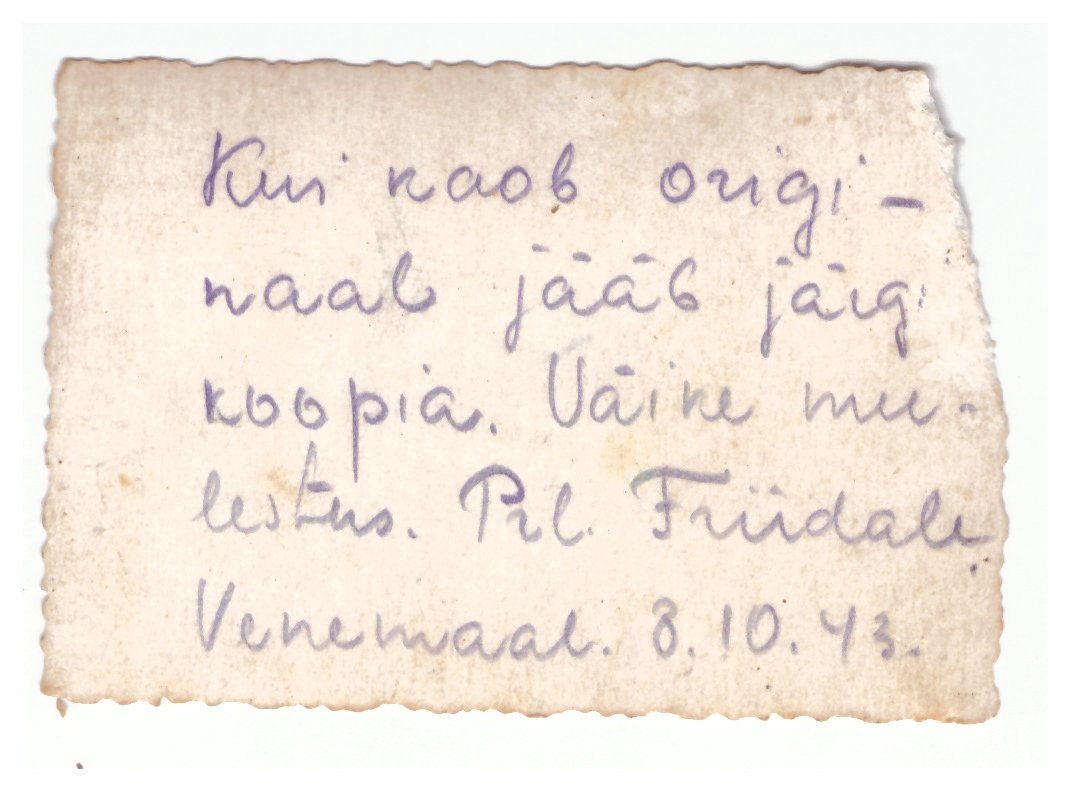 Kui kaob origi-
naal jääb järgi
koopia. Väike mä-
lestus. Prl. Friidale,
Venemaal. 8.10.43.